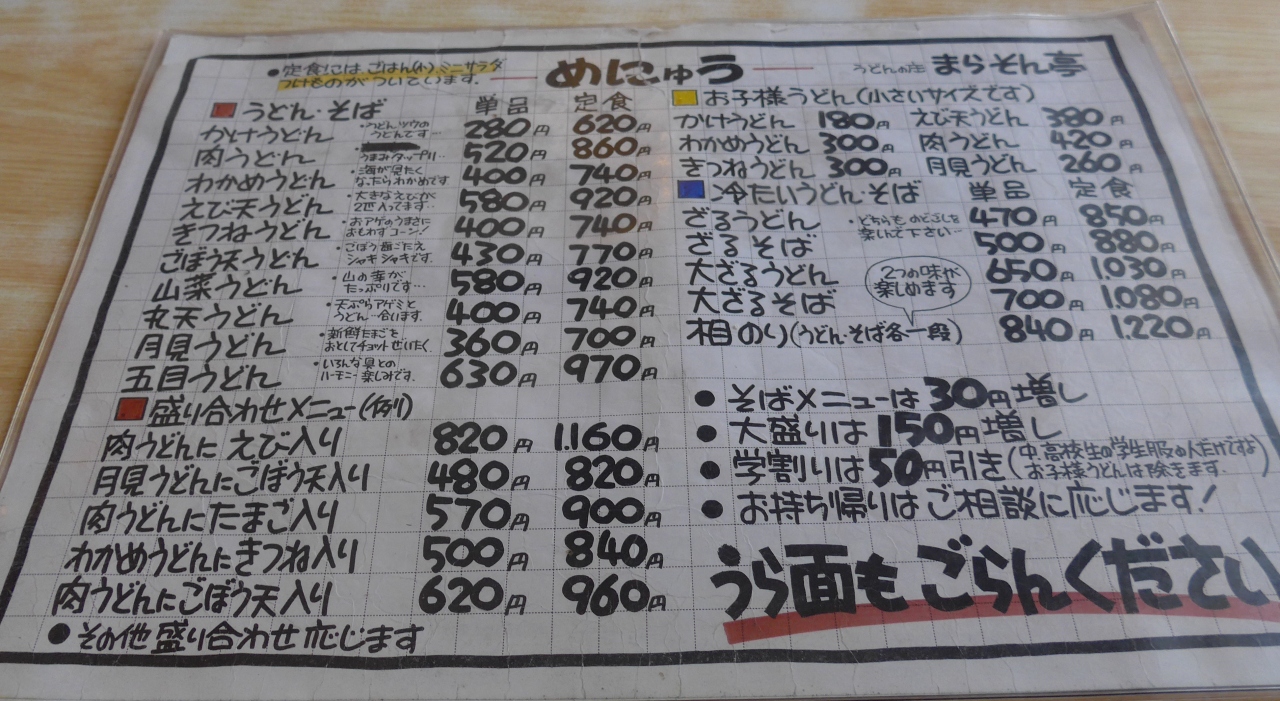 •定食には、ごはん(小)、ミニサラダ
つけものがついています。
めにゅう
うどんの庄 まらそん亭
うどん・そば 単品 定食
かけうどん •うどんツウのうどんです… 280円 620円
肉うどん うまみタップリ… 520円 860円
わかめうどん •海が見たくなったらわかめです 400円 740円
えび天うどん •大きなえびが2匹入ってます… 580円 920円
きつねうどん •おアゲのうまさにおもわずコーン! 400円 740円
ごぼう天うどん •ごぼう歯ごたえシャキシャキです. 430円 770円
山菜うどん •山の幸がたっぷりです… 580円 920円
丸天うどん •天ぷらアゲミとうどん…合います. 400円 740円
月見うどん •新鮮たまごをおとしてチョットぜいたく. 360円 700円
五目うどん •いろんな具とのハーモニー楽しみです. 630円 970円
盛り合わせメニュー(例)
肉うどんに えび入り 820円 1.160円
月見うどんにごぼう天入り 480円 820円
肉うどんにたまご入り 570円 900円
わかめうどんにきつね入り 500円 840円
肉うどんにごぼう天入り 620円 960円
●その他盛り合わせ応じます
お子様うどん(小さいサイズです)
かけうどん 180円 えび天うどん 380円
わかめうどん 300円 肉うどん 420円
きつねうどん 300円 月見うどん 260円
冷たいうどん・そば 単品 定食
ざるうどん •どちらものどごしを楽しんで下さい… 470円 850円
ざるそば 500円 880円
大ざるうどん 650円 1.030円
大ざるそば 700円 1.080円
2つの味が
楽しめます
相のり(うどん・そば各一段) 840円 1.220円
●そばメニューは30円増し
●大盛りは150円増し
●学割りは50円引き(中、高校生の学生服の人だけですよ お子様うどんは除きます.)
●お持ち帰りはご相談に応じます!
うら面もごらんください